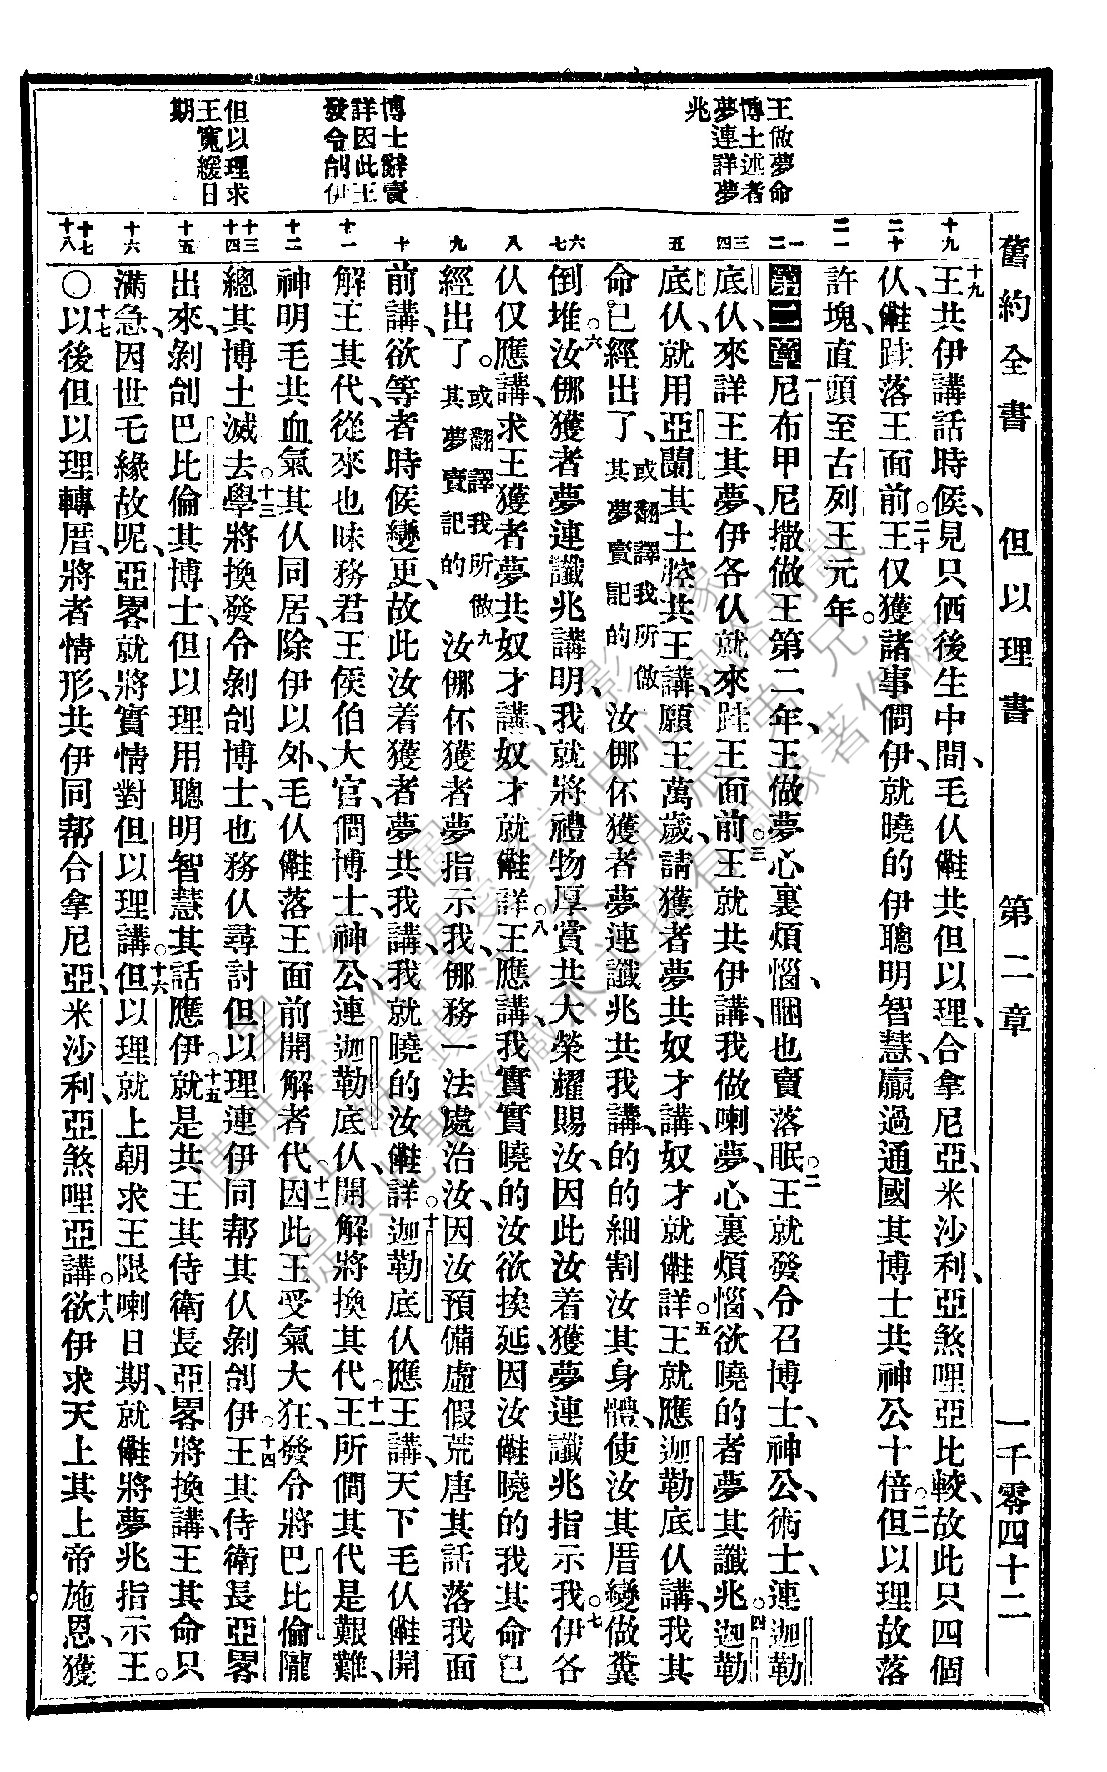 舊約全書　但以理書　第二章　一千零四十二
王做夢命
博士述者
夢連詳夢
兆
博士辭賣
詳因此王
發令剖伊
但以理求
王寬緩日
期
十九王共伊講話時候、見只價後生中間、毛仈𣍐共但以理、合拿尼亞、米沙利、亞煞哩亞比較、故此只四個
仈、𨅔落王面前。二十王仅獲諸事問伊、就曉的伊聰明智慧、贏過通國其博士共神公十倍。二一但以理故落
許塊、直頭至古列王元年。
第二章 一尼布甲尼撒做王第二年、王做夢心裏煩惱、睏也賣落眠。二王就發令召博士、神公、術士、連迦勒
底仈、來詳王其夢、伊各仈就來跬王面前。三王就共伊講、我做喇夢、心裏煩惱、欲曉的者夢其讖兆。四迦勒
底仈、就用亞蘭其土腔共王講、願王萬歲、請獲者夢共奴才講、奴才就𣍐詳。五王就應迦勒底仈講、我其
命已經出了、或翻譯我所做其夢賣記的汝倻伓獲者夢連讖兆共我講、的的細割汝其身體、使汝其厝變做糞
倒堆。六汝倻獲者夢連讖兆講明、我就將禮物厚賞共大榮耀賜汝、因此汝着獲夢連讖兆指示我。七伊各
仈仅應講、求王獲者夢共奴才講、奴才就𣍐詳。八王應講、我實實曉的汝欲挨延、因汝𣍐曉的我其命已
經出了。或翻譯我所做其夢賣記的九汝倻伓獲者夢指示我、倻務一法處治汝、因汝預備虛假荒唐其話落我面
前講、欲等者時候變更、故此汝着獲者夢共我講、我就曉的汝𣍐詳。十迦勒底仈應王講、天下毛仈𣍐開
解王其代、從來也昧務君王侯伯大官、問博士、神公、連迦勒底仈、開解將換其代。十一王所問其代是艱難、
神明毛共血氣其仈同居、除伊以外、毛仈𣍐落王面前開解者代。十二因此王受氣大狂、發令將巴比倫隴
總其博士滅去。十三學將換發令剝剖博士、也務仈尋討但以理連伊同幫其仈剝剖伊。十四王其侍衛長亞畧
出來、剝剖巴比倫其博士、但以理用聰明智慧其話應伊。十五就是共王其侍衛長亞畧將換講、王其命只
滿急、因世乇緣故呢、亞畧就將實情對但以理講。十六但以理就上朝求王限喇日期、就𣍐將夢兆指示王。
○十七以後但以理轉厝、將者情形、共伊同幫合拿尼亞、米沙利、亞煞哩亞講。十八欲伊求天上其上帝施恩、獲